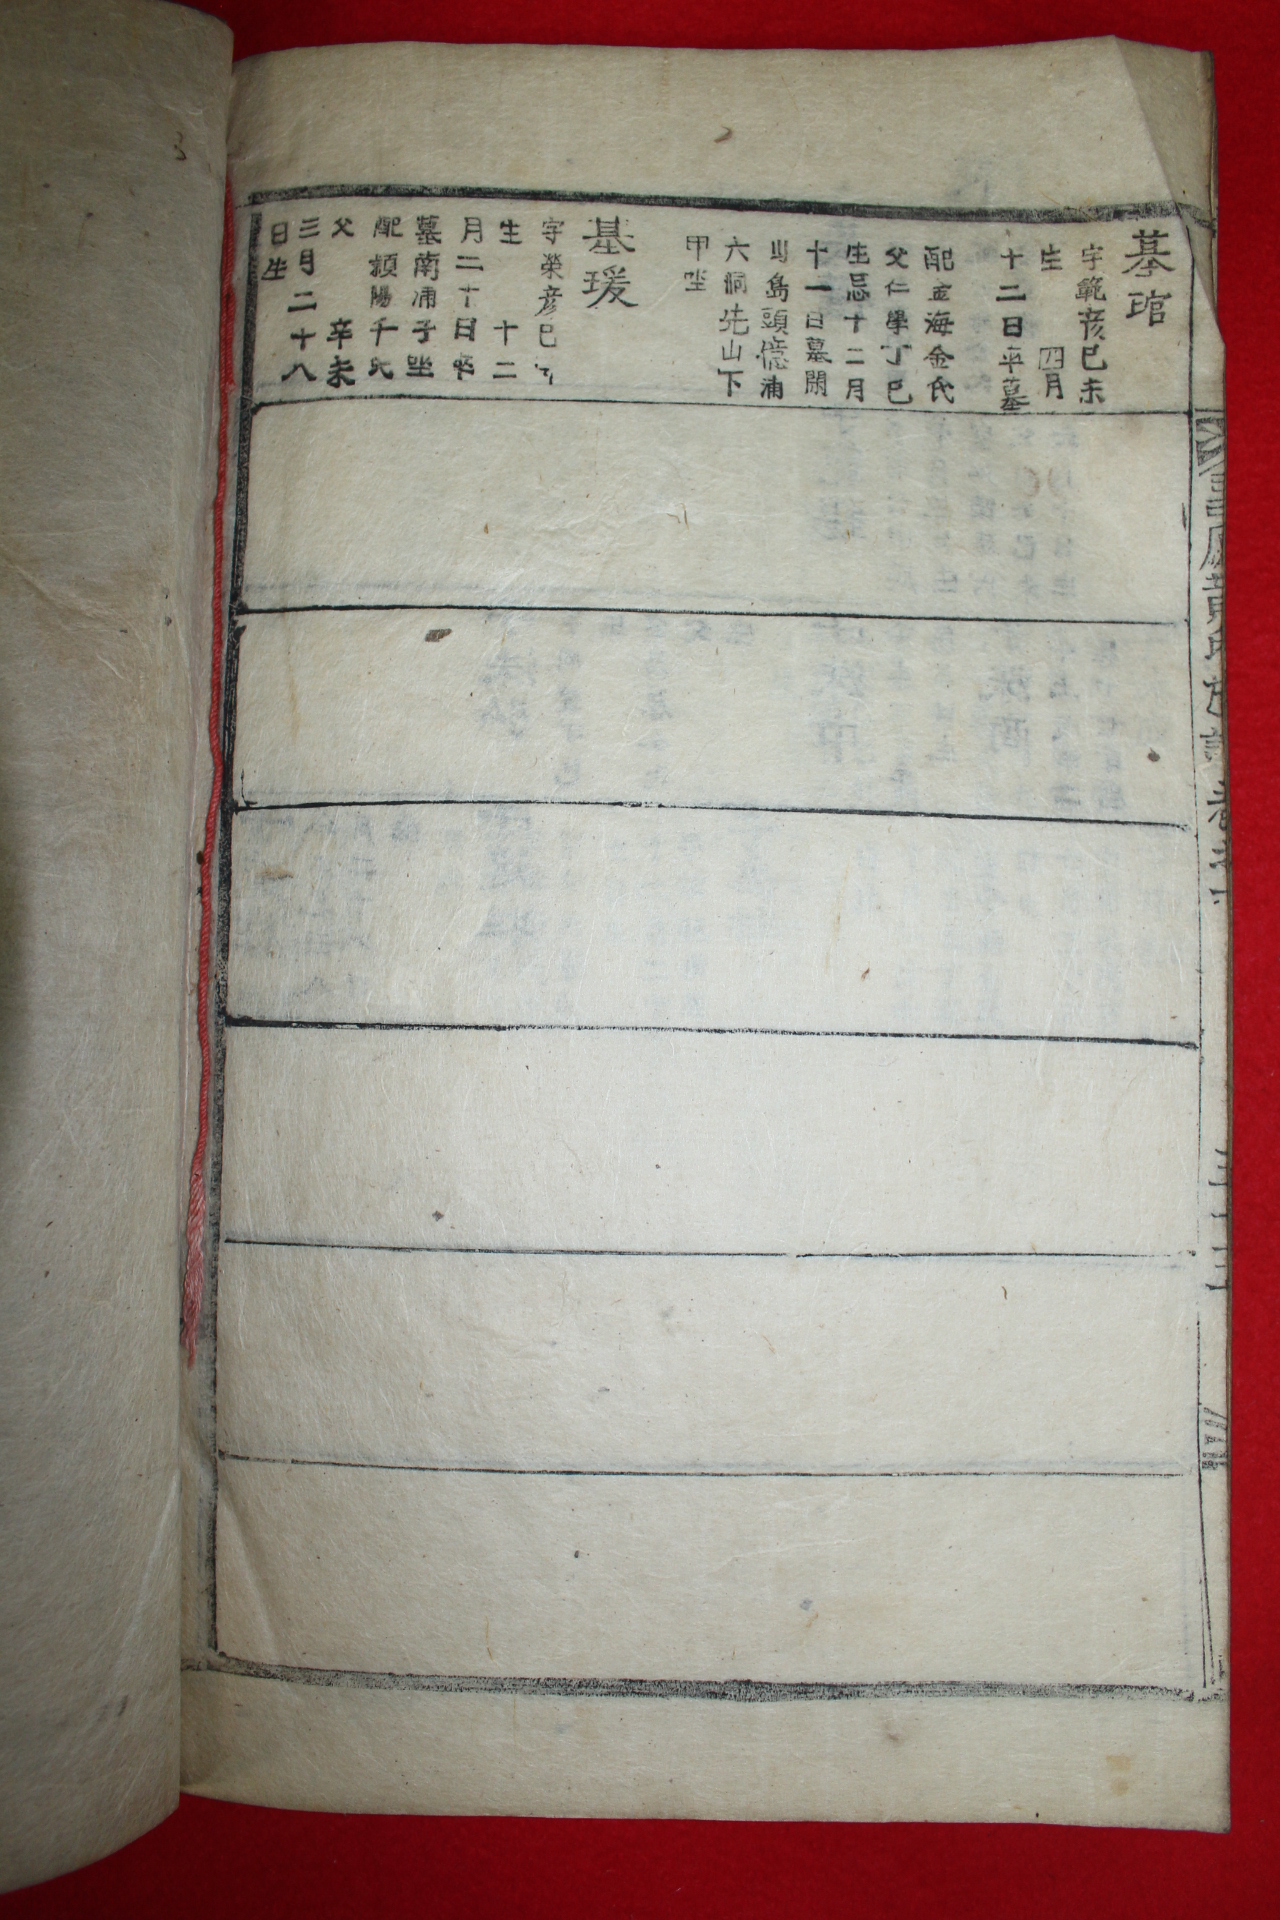 基琯
字範彦己未
生 四月
十二日卒墓
配金海金氏
父仁學丁巳
生忌十二月
十一日墓閑
山島頭億浦
六洞先山下
甲坐
基瑗
字榮彦巳
生 十二
月二十日卒
墓南浦子坐
配潁陽千氏
父 辛未
三月二十八
日生
黃氏世譜 卷之